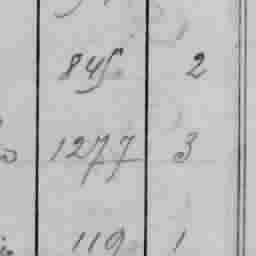 845 2
1277 3
119 1